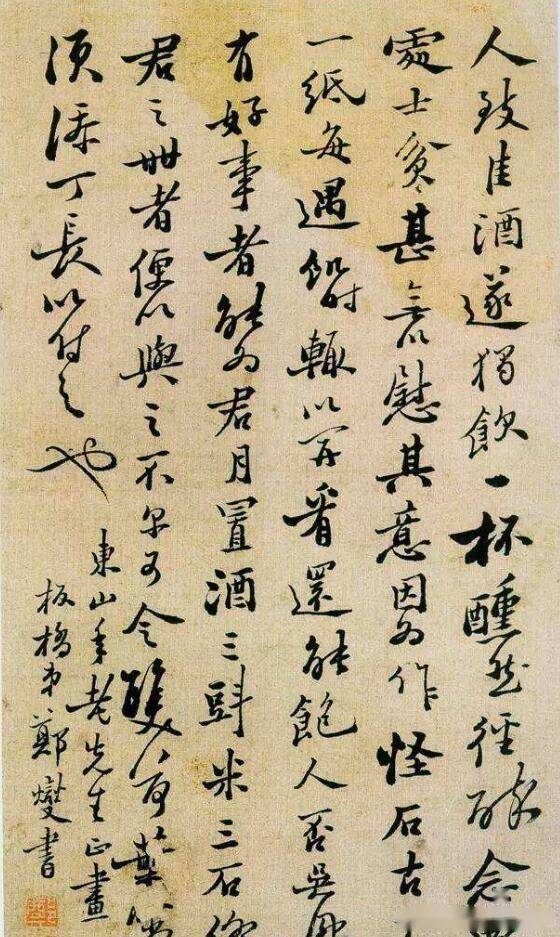 人致佳酒遂獨飲一杯醺然徑醉念
處士貧甚無以慰其意因為作怪石古
一紙每遇飢時輒以開看還能飽人否吳
有好事者能為君月置酒三㪷米三石終
君之世者便以與之不爾可令雙荷葉
須添丁長以付之也
東山年老先生正畫
板橋弟鄭燮書